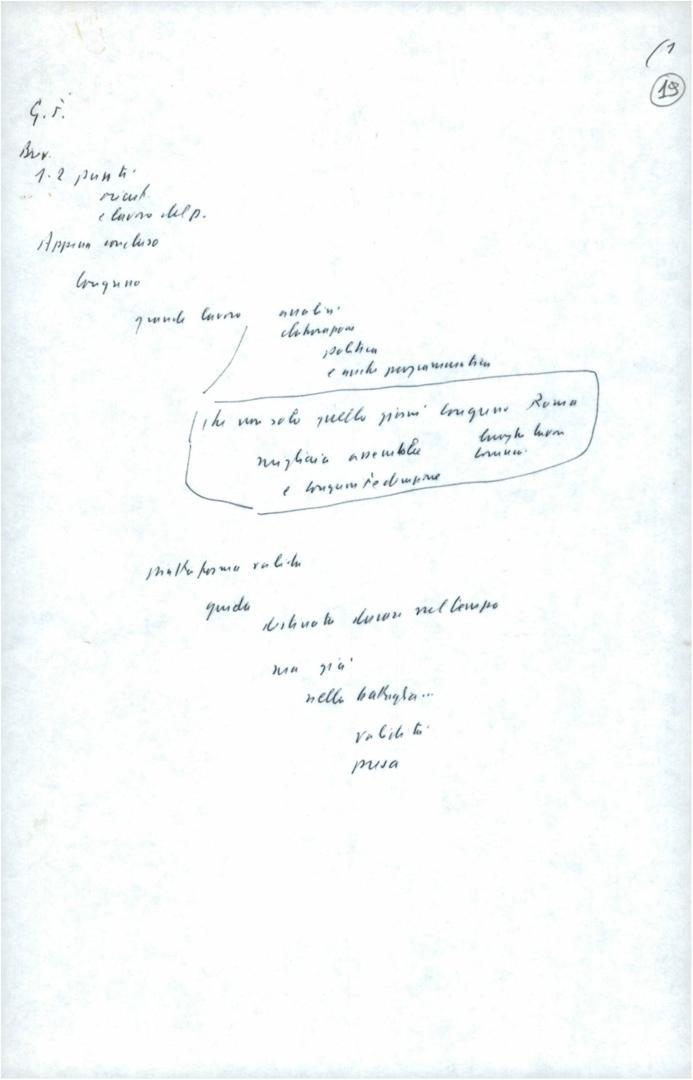 (1
19
Brev.
1-2 punti
orient.
e lavoro del p.
Appena concluso
Congresso
grande lavoro analisi
elaborazione
politica
e anche programmatica
che non solo quello giorni Congresso Roma
migliaia assemblee luoghi lavoro
e congressi federazione comuni
piattaforma valida
guida
destinata durare nel tempo
ma già
nella battaglia...
validità
presa